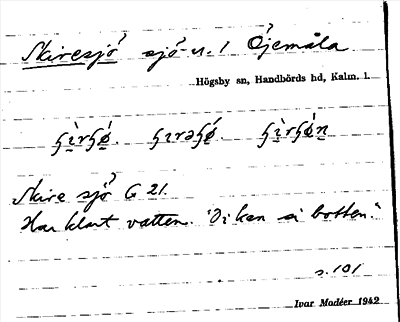 Skiresjö sjö n. 1 Öjemåla
Högsby sn, Handbörds hd, Kalm. l.
Skire sjö G 21.
Har klart vatten. "Di kan si botten."
s. 101
Ivar Modéer 1942